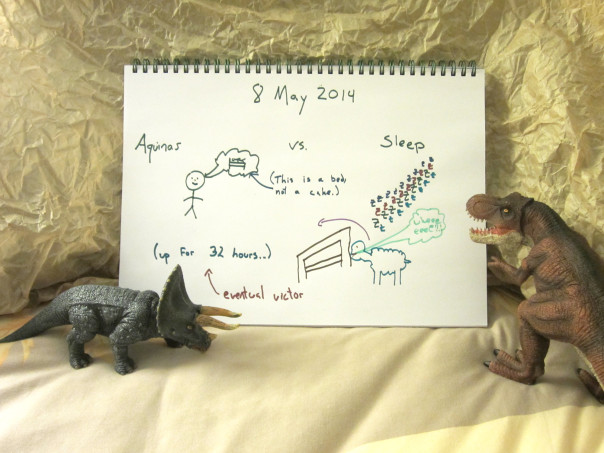 8 May 2014
Aquinas vs. Sleep
(This is a bed,
not a cake.)
(up for 32 hours..)
eventual victor